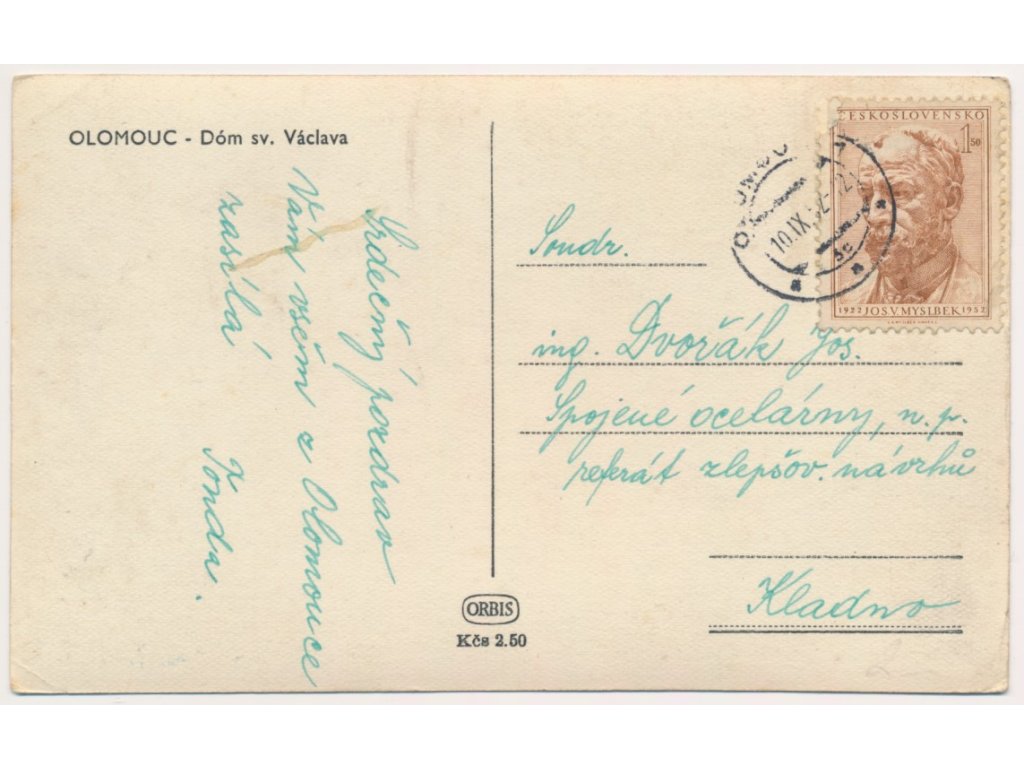 OLOMOUC - Dóm sv. Václava
Srdečný pozdrav
Vám všem z Olomouce
zasílá
Tonda.
ČESKOSLOVENSKO
1 50
1922 JOS.V.MYSLBEK 1952
OLOMOUC
10.IX.52-12
Soudr.
ing. Dvořák Jos.
Spojené ocelárny, n.p.
referát zlepšov. návrhů
Kladno
ORBIS
Kčs 2.50